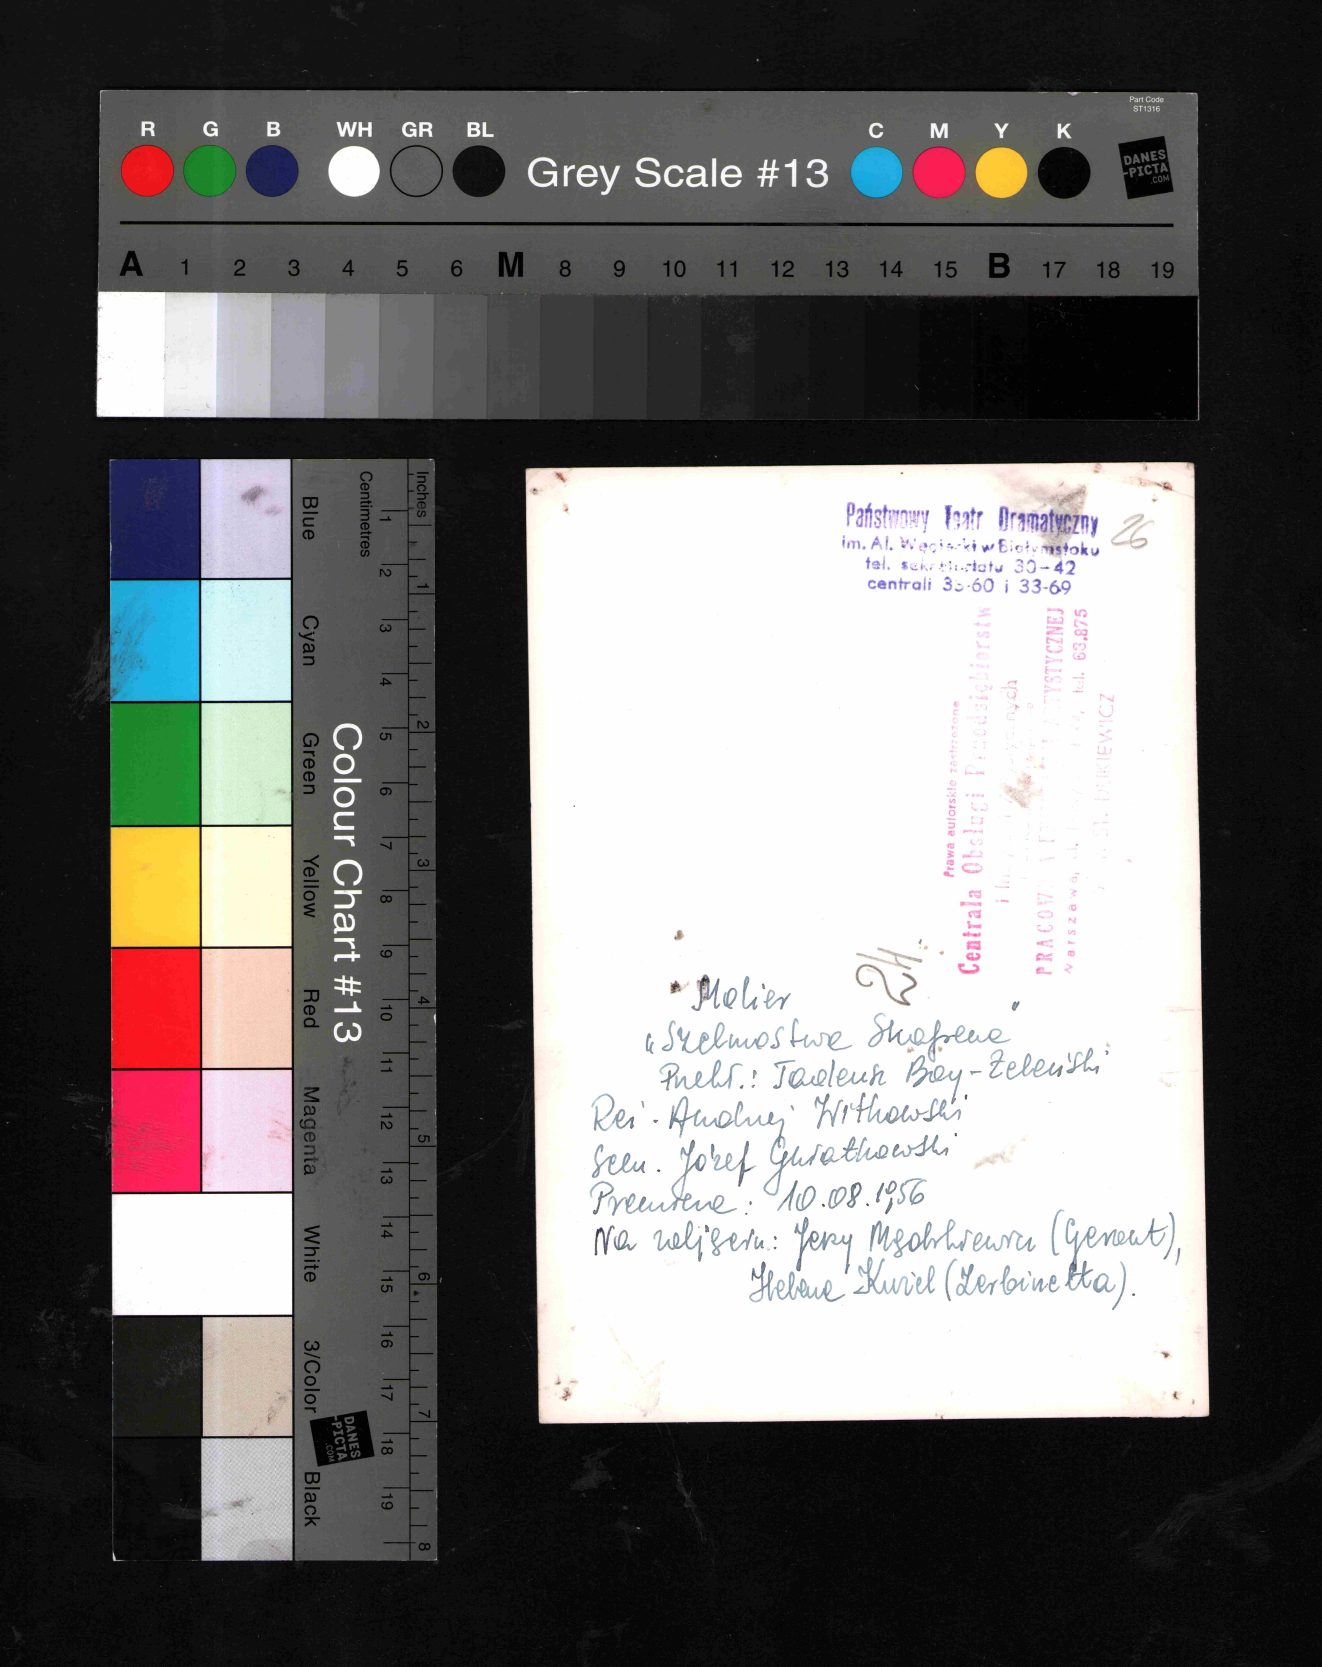 Part Code
ST1316
R G B WH GR BL Grey Scale #13 C M Y K
DANES
-PICTA
.COM
A 1 2 3 4 5 6 M 8 9 10 11 12 13 14 15 B 17 18 19
Inches
Centimetres
1 2 3 4 5 6 7 8
1 2 3 4 5 6 7 8 9 10 11 12 13 14 15 16 17 18 19
Colour Chart #13
Blue
Cyan
Green
Yellow
Red
Magenta
White
3/Color
Black
DANES
-PICTA
.COM
Państwowy Teatr Dramatyczny
im. Al. Węgierki w Białymstoku
tel. sekretariatu 30-42
centrali 33-60 i 33-69
26
Prawa autorskie zastrzeżone
Centrala Obsługi Przedsiębiorstw
i
PRACOWNIA ARTYSTYCZNEJ
Warszawa, tel. 63.875
Molier
„Szelmostwa Skapena"
Przekł.: Tadeusz Boy-Żeleński
Reż. Andrzej Witkowski
Scen. Józef Gwiatkowski
Premiera: 10.08.1956
Na zdjęciu: Jerzy (Geront),
Helena Kuziel (Zerbinetta).